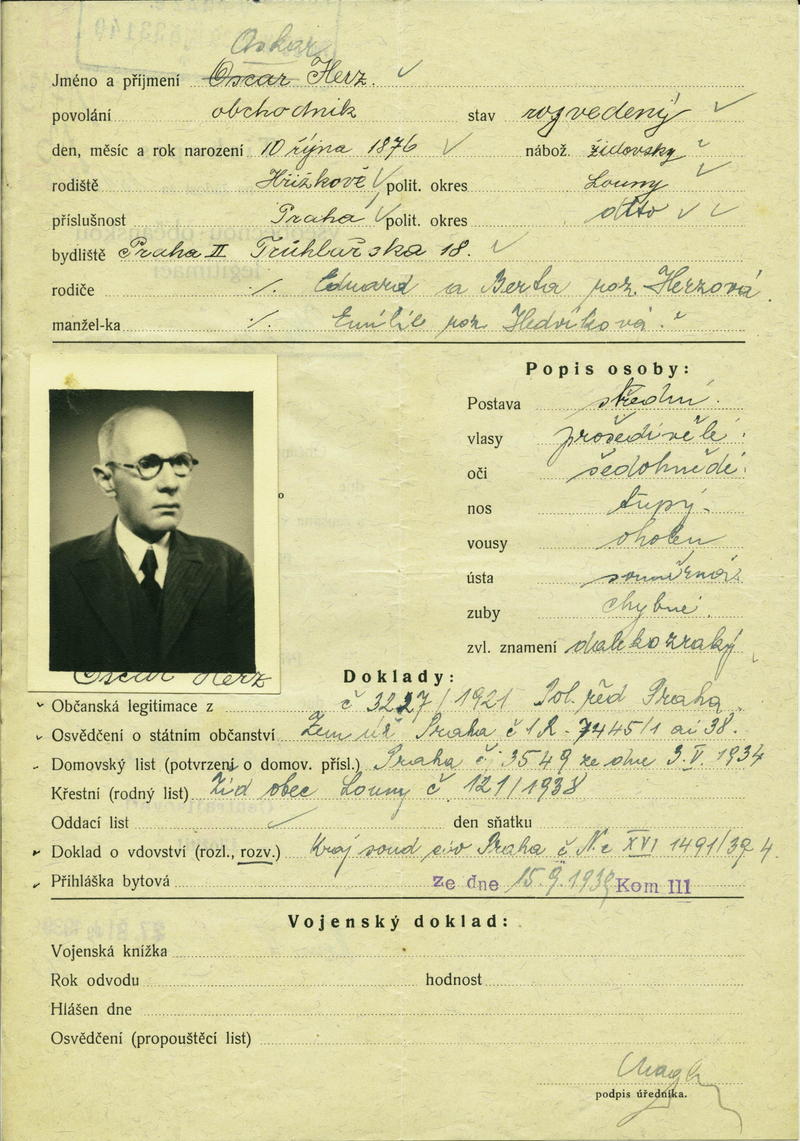 Oskar
Jméno a příjmení Oscar Herz.
povolání obchodník stav rozvedený
den, měsíc a rok narození 10 října 1876 nábož. židovsky
rodiště Hřižkově polit. okres Louny
příslušnost Praha polit. okres dtto
bydliště Praha II Truhlařska 18.
rodiče ./. Eduard a Berta roz. Herzová.
manžel-ka ./. Emilie roz
Popis osoby:
Postava střední.
vlasy prošedivělé.
oči šedohnědé.
nos tupý.
vousy oholen
ústa souměrná.
zuby chybné.
zvl. znamení dalekozraký
Oscar Herz
Doklady:
Občanská legitimace z č 3227/1921 Pol. řed Praha
Osvědčení o státním občanství Zem úř Praha č 1R-7445/1 ai 38.
Domovský list (potvrzení o domov. přísl.) Praha č. 3549 ze dne 3. V. 1934
Křestní (rodný list) Žid obec Louny č. 121/1938
Oddací list den sňatku
Doklad o vdovství (rozl., rozv.) Kraj soud civ Praha č Nc XVI 1491/39 4.
Přihláška bytová Ze dne 15.9.1939 Kom III
Vojenský doklad:
Vojenská knížka
Rok odvodu hodnost
Hlášen dne
Osvědčení (propouštěcí list)
podpis úředníka.